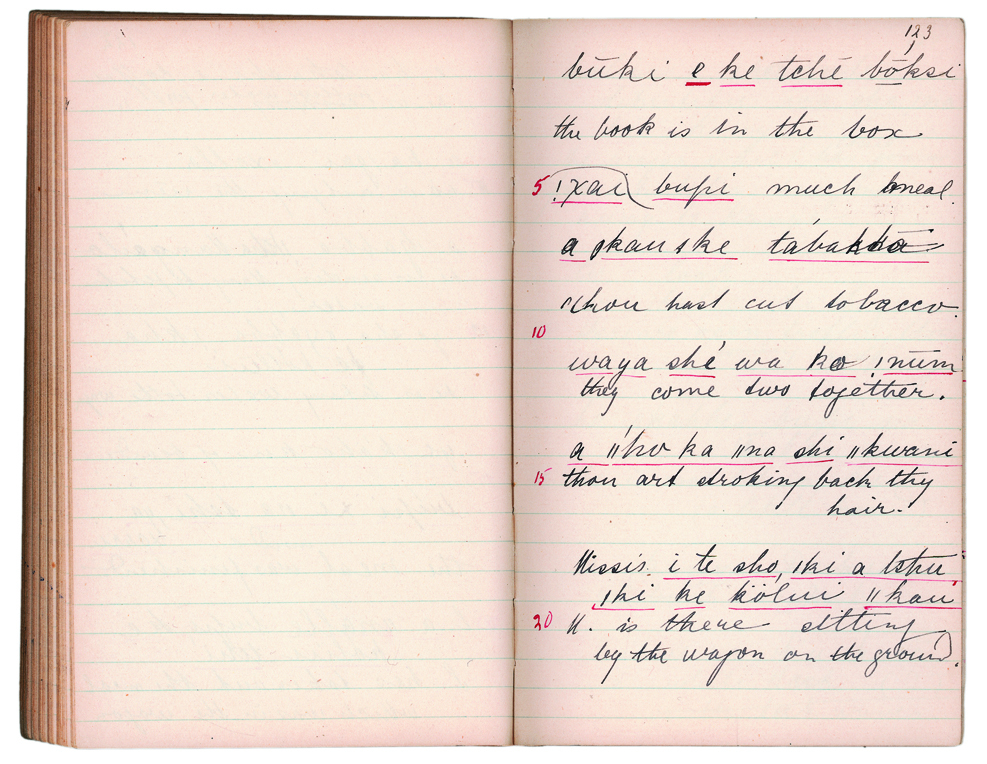 123
būki e ke tché bóksi
the book is in the box
5 !χai bupi much meal.
a ǀkau ske tábakka
thou hast cut tobacco.
10
waya shé wa ko ǃnum
they come two together.
a ǁho ka ǁna shi ǁkwani
15 thou art stroking back thy
hair.
i te sho, ǀki a tshu
ǀki ke kolui ǁkau
20 K. is there sitting
by the wagon on the ground.